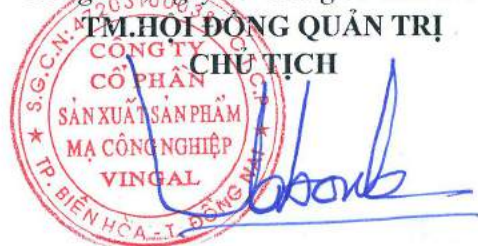 TM.HỘI ĐỒNG QUẢN TRỊ
CHỦ TỊCH
CÔNG TY
CỔ PHẦN
SẢN XUẤT SẢN PHẨM
MẠ CÔNG NGHIỆP
VINGAL
TP. BIÊN HÒA - T. ĐỒNG NAI